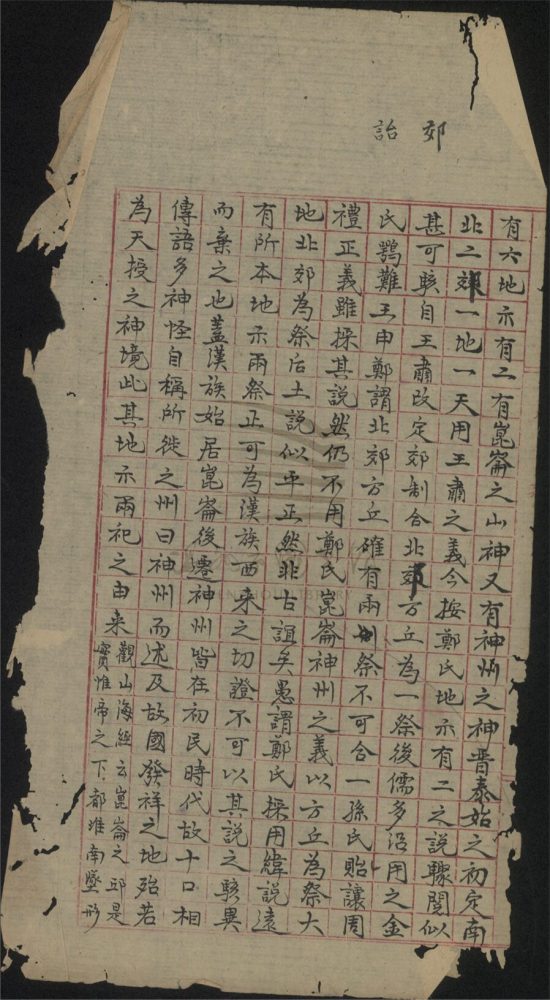 郊詒
有六地示有二有崑崙之山神又有神州之神晉泰始之初定南
北二郊一地一天用王肅之義今按鄭氏地示有二之說驟閱似
甚可駭自王肅改定郊制合北郊方丘為一祭後儒多沿用之金
氏鶚難王申鄭謂北郊方丘確有兩祭不可合一孫氏貽讓周
禮正義雖採其說然仍不用鄭氏崑崙神州之義以方丘為祭大
地北郊為祭后土說似平正然非古誼矣愚謂鄭氏採用緯說遠
有所本地示兩祭正可為漢族西来之切證不可以其說之駭異
而棄之也蓋漢族始居崑崙後遷神州皆在初民時代故十口相
傳語多神怪自稱所徙之州曰神州而述及故國發祥之地殆若
為天授之神境此其地示兩祀之由来觀山海經云崑崙之邱是
實惟帝之下都淮南墬形